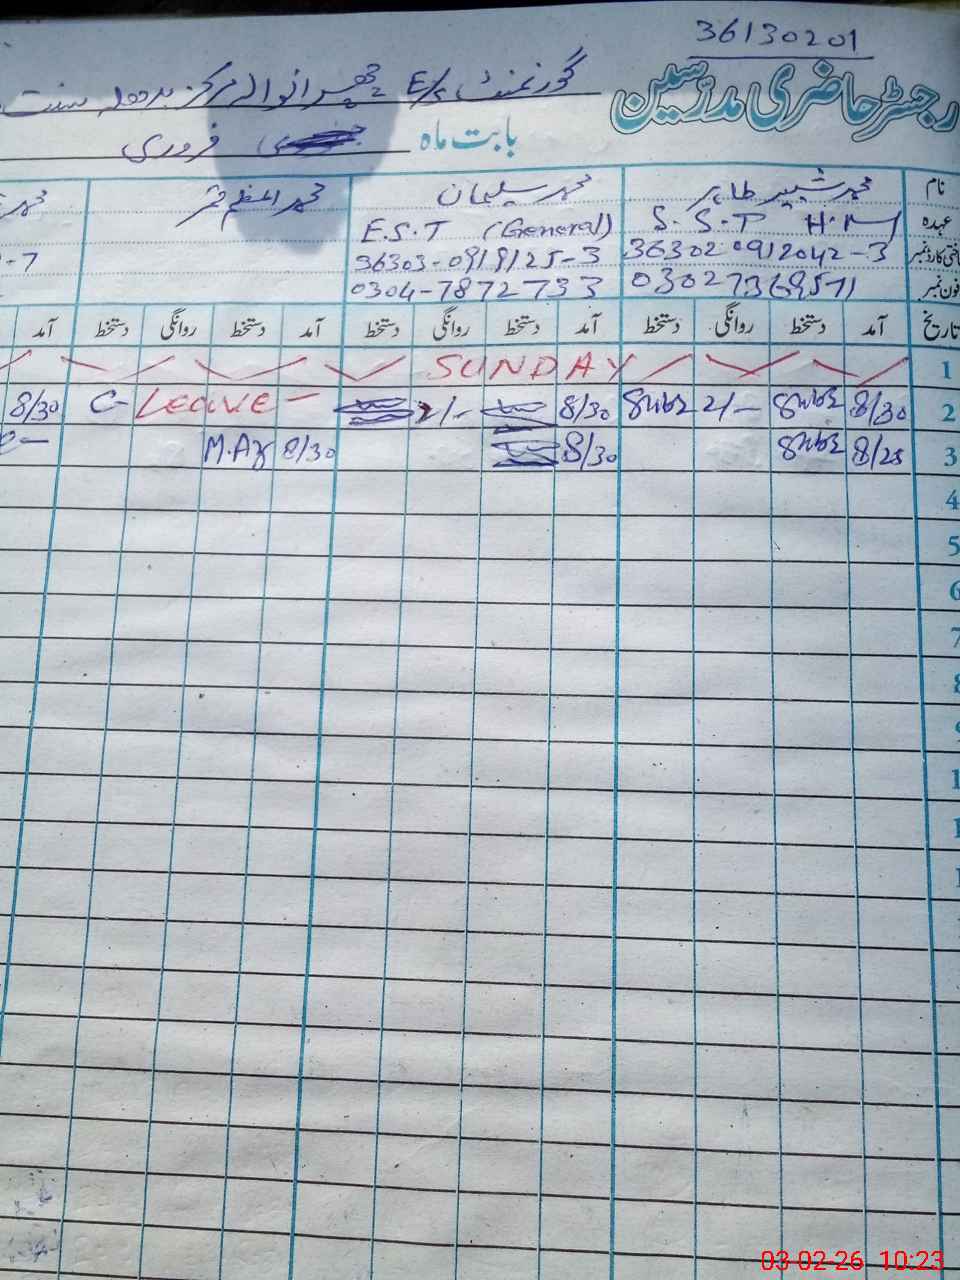 36130201
رجسٹر حاضری مدرسین
گورنمنٹ E/S مرکز
بابت ماہ فروری
نام محمد شبیر طاہر محمد سلیمان محمد
عہدہ S.S.T H.M E.S.T (General)
شناختی کارڈ نمبر 36302 0912042-3 36303-0919125-3 -7
فون نمبر 03027369571 0304-7872733
تاریخ آمد دستخط روانگی دستخط آمد دستخط روانگی دستخط آمد دستخط روانگی دستخط آمد
1 SUNDAY
2 8/30 2/- 8/30 2/- C-Leave- 8/30
3 8/25 8/30 8/30 M.Az
4
5
6
7
8
9
03-02-26 10:23